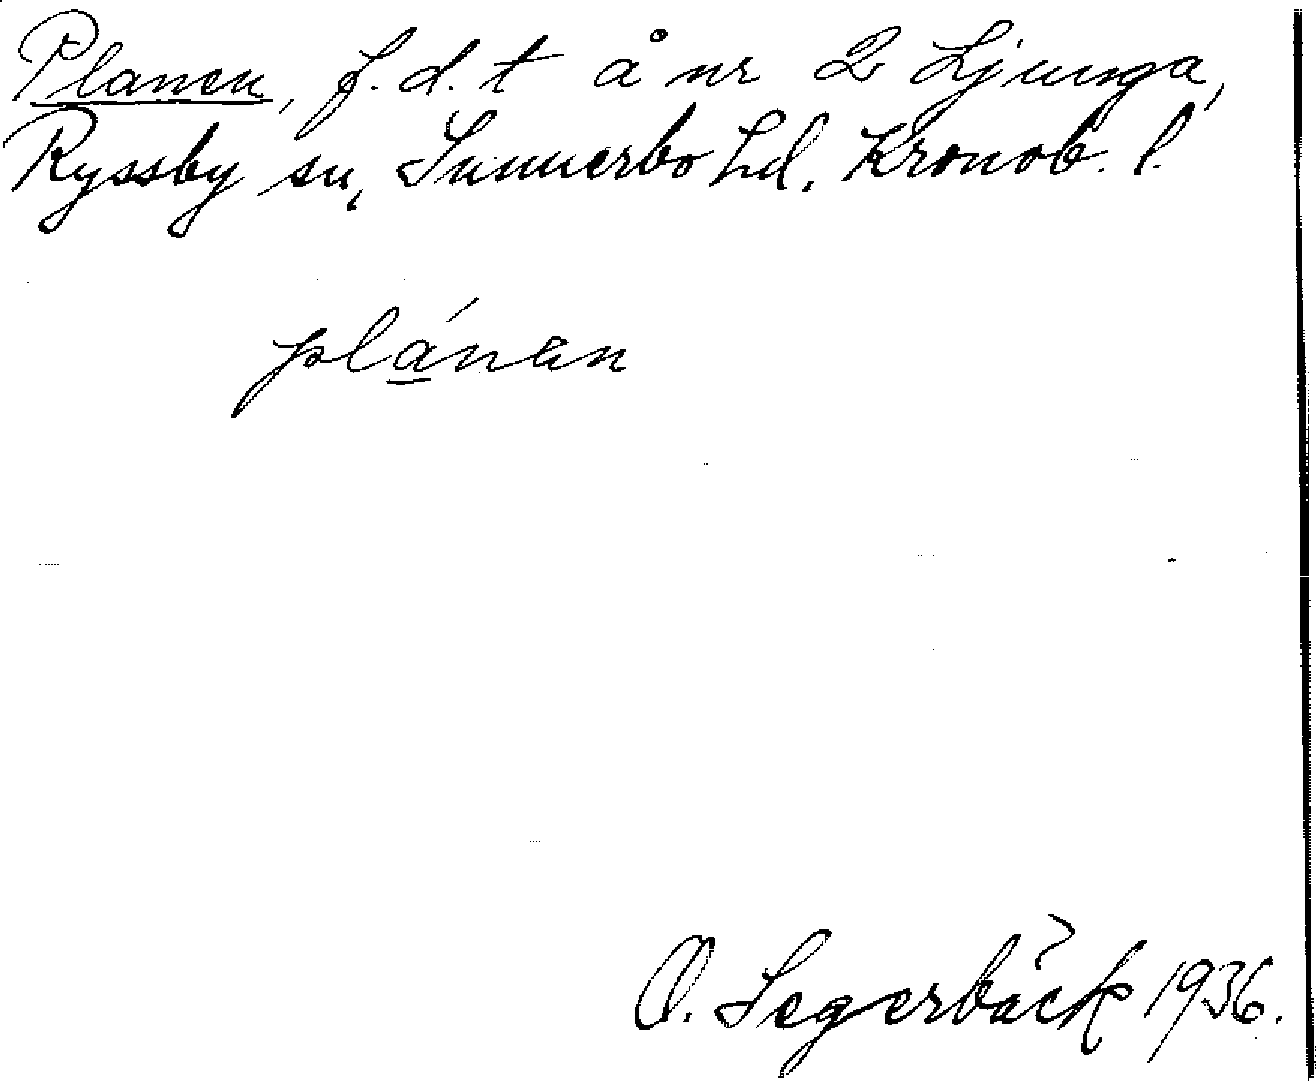 Planen, f.d.t å nr 2 Ljunga,
Ryssby sn, Sunnerbo hd, Kronob. l.
plánen
O. Segerbäck 1936.